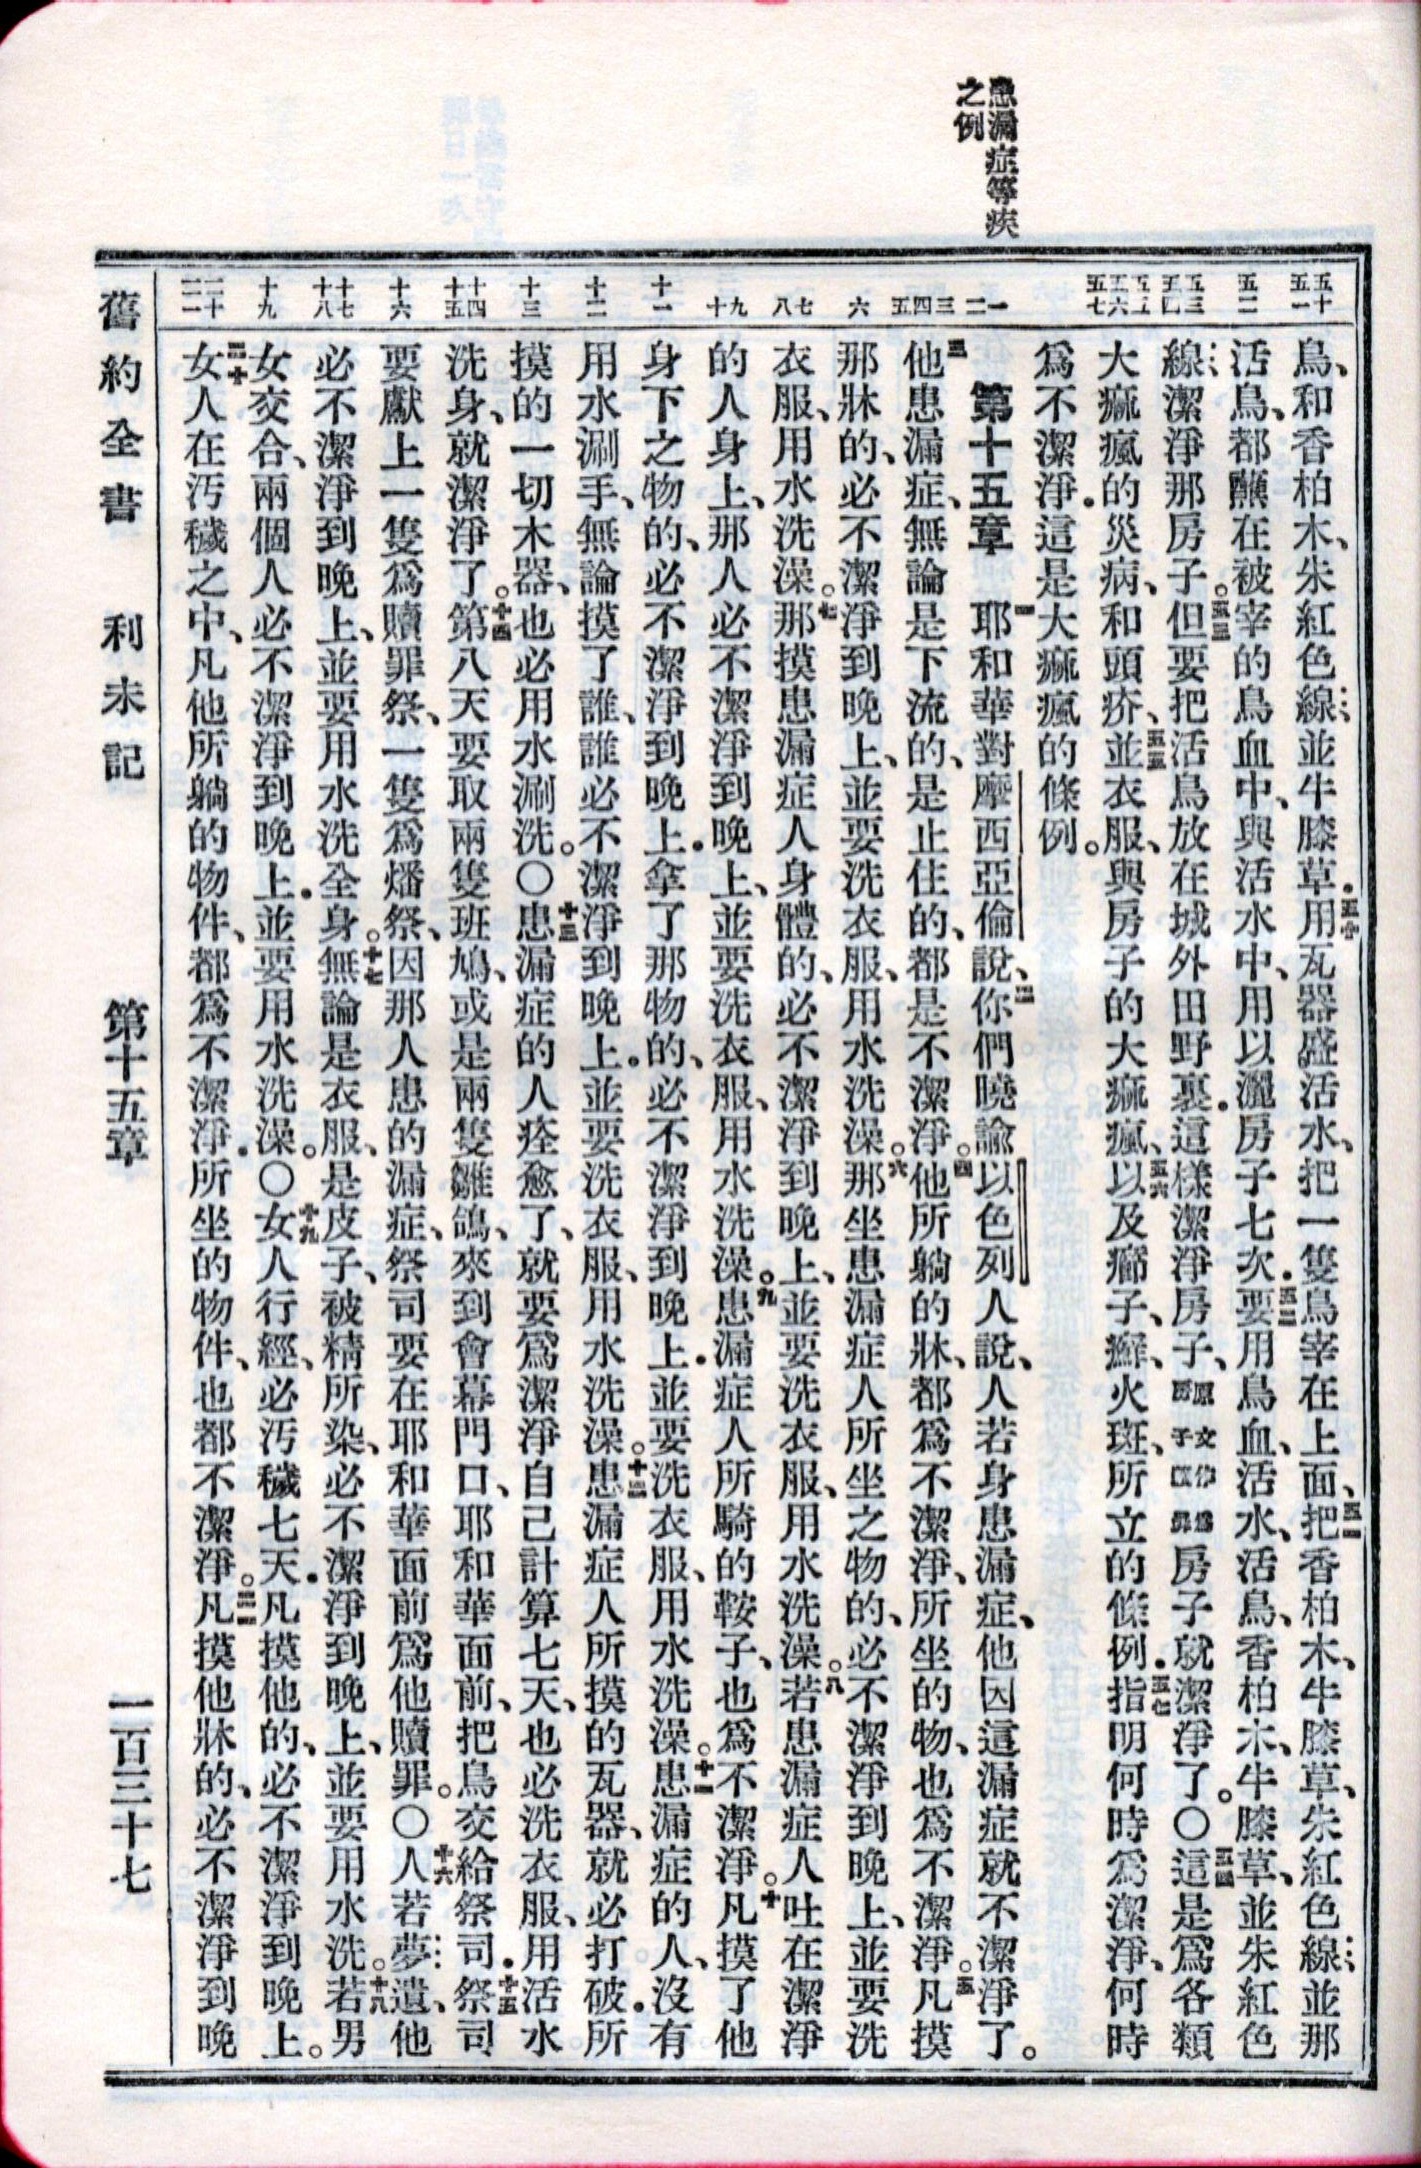 患漏症等疾
之例
五十 五一
五二
五三 五四
五五 五六 五七
一 二
三 四 五
六
七 八
九 十
十一
十二
十三
十四 十五
十六
十七 十八
十九
二十 二一
鳥、和香柏木、朱紅色線並牛膝草.五十用瓦器盛活水、把一隻鳥宰在上面、五一把香柏木、牛膝草、朱紅色線並那
活鳥、都蘸在被宰的鳥血中、與活水中、用以灑房子七次.五二要用鳥血、活水、活鳥、香柏木、牛膝草、並朱紅色
線潔淨那房子。五三但要把活鳥放在城外田野裏.這樣潔淨房子、原文作爲房子贖罪房子就潔淨了。〇五四這是爲各類
大痲瘋的災病、和頭疥、五五並衣服、與房子的大痲瘋、五六以及癤子、癬、火斑、所立的條例.五七指明何時爲潔淨、何時
爲不潔淨.這是大痲瘋的條例。
第十五章 一耶和華對摩西亞倫說、二你們曉諭以色列人說、人若身患漏症、他因這漏症就不潔淨了。
三他患漏症、無論是下流的、是止住的、都是不潔淨。四他所躺的牀、都爲不潔淨、所坐的物、也爲不潔淨。五凡摸
那牀的、必不潔淨到晚上、並要洗衣服、用水洗澡。六那坐患漏症人所坐之物的、必不潔淨到晚上、並要洗
衣服、用水洗澡。七那摸患漏症人身體的、必不潔淨到晚上、並要洗衣服、用水洗澡。八若患漏症人吐在潔淨
的人身上、那人必不潔淨到晚上、並要洗衣服、用水洗澡。九患漏症人所騎的鞍子、也爲不潔淨。十凡摸了他
身下之物的、必不潔淨到晚上.拿了那物的、必不潔淨到晚上.並要洗衣服、用水洗澡。十一患漏症的人、沒有
用水涮手、無論摸了誰、誰必不潔淨到晚上.並要洗衣服、用水洗澡。十二患漏症人所摸的瓦器、就必打破.所
摸的一切木器、也必用水涮洗。〇十三患漏症的人痊愈了、就要爲潔淨自己計算七天、也必洗衣服、用活水
洗身、就潔淨了。十四第八天要取兩隻班鳩、或是兩隻雛鴿、來到會幕門口、耶和華面前、把鳥交給祭司.十五祭司
要獻上一隻爲贖罪祭、一隻爲燔祭、因那人患的漏症、祭司要在耶和華面前爲他贖罪。〇十六人若夢遺、他
必不潔淨到晚上、並要用水洗全身。十七無論是衣服、是皮子、被精所染、必不潔淨到晚上、並要用水洗。十八若男
女交合、兩個人必不潔淨到晚上.並要用水洗澡。〇十九女人行經、必汚穢七天.凡摸他的、必不潔淨到晚上。
二十女人在汚穢之中、凡他所躺的物件、都爲不潔淨.所坐的物件、也都不潔淨。二一凡摸他牀的、必不潔淨到晚
舊約全書 利未記 第十五章 一百三十七